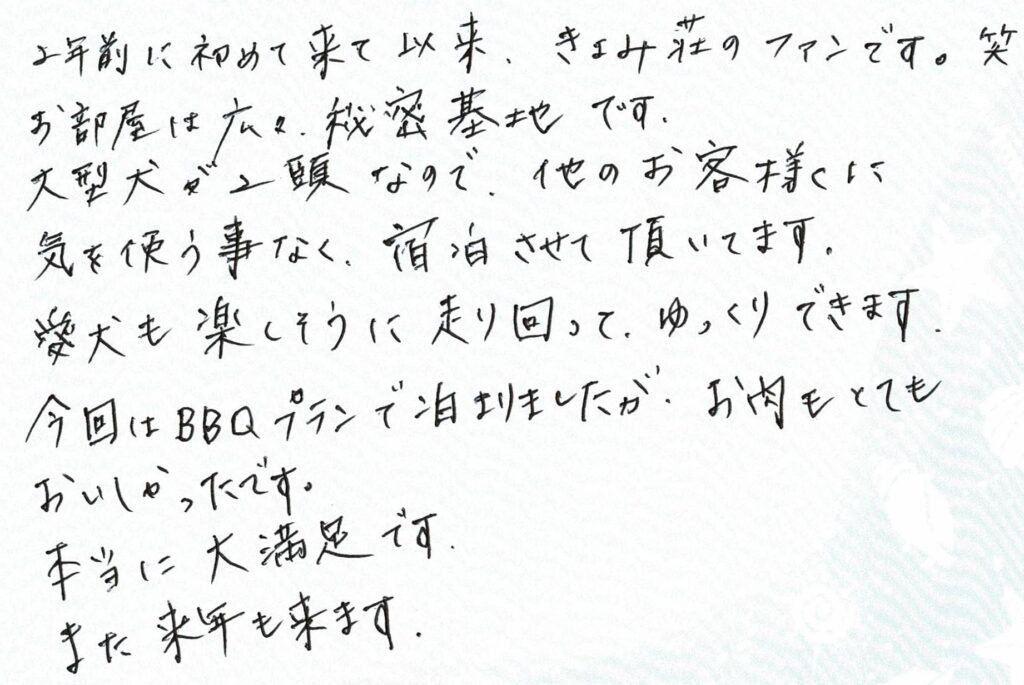 2年前に初めて来て以来、きよみ荘のファンです。笑
お部屋は広々、秘密基地です。
大型犬が2頭なので、他のお客様に
気を使う事なく、宿泊させて頂いてます。
愛犬も楽しそうに走り回って、ゆっくりできます。
今回はBBQプランで泊まりましたが、お肉もとても
おいしかったです。
本当に大満足です。
また来年も来ます。